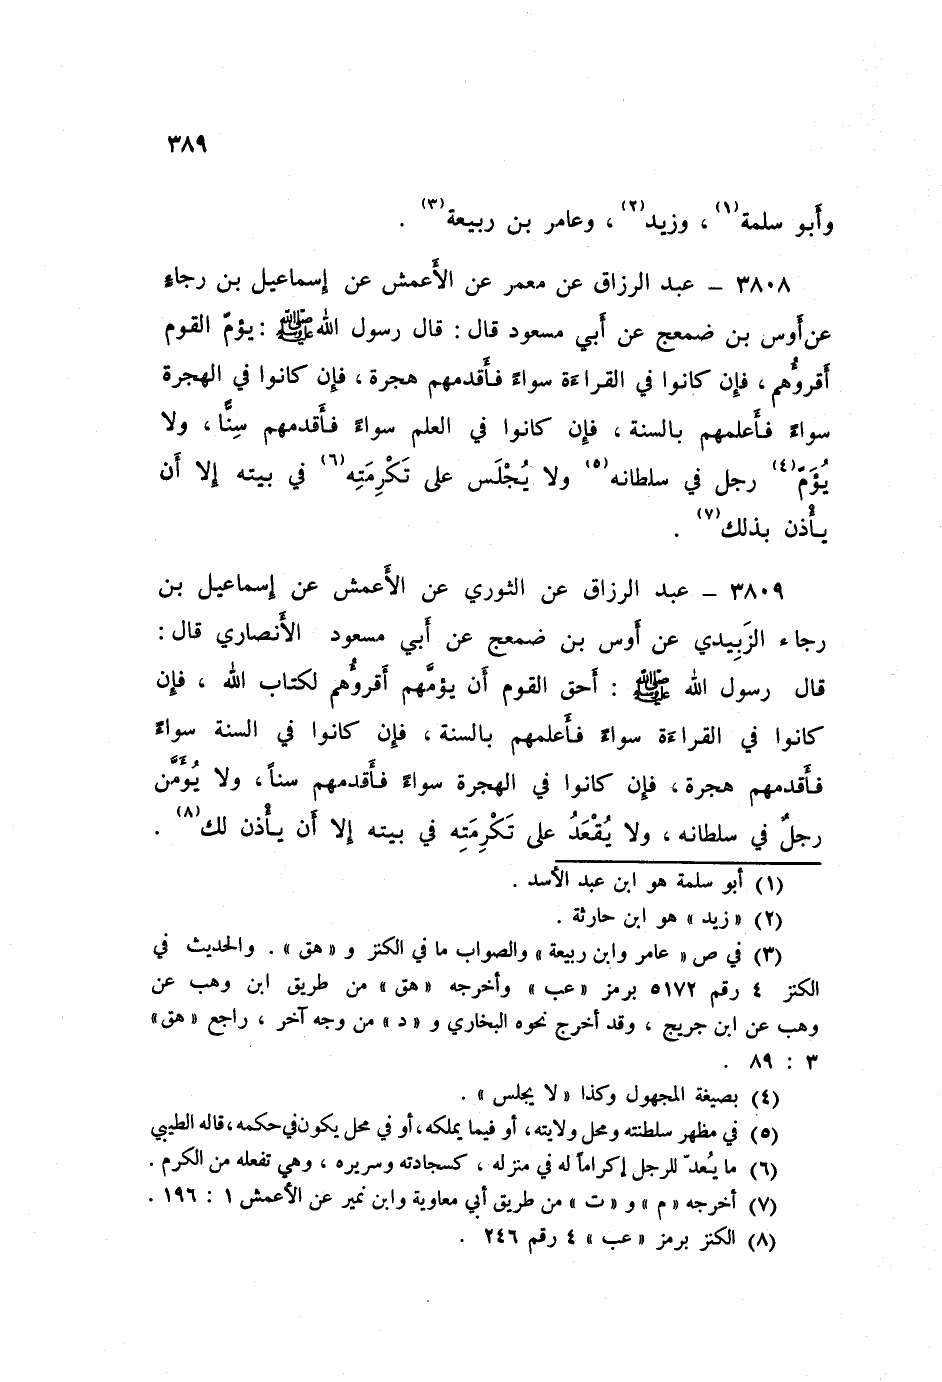 ٣٨٩
وأَبو سلمة(١) ، وزيد(٢) ، وعامر بن ربيعة(٣) .
٣٨٠٨ – عبد الرزاق عن معمر عن الأَعمش عن إسماعيل بن رجاءٍ
عن أَوس بن ضمعج عن أَبي مسعود قال : قال رسول الله ﷺ : يؤمّ القوم
أَقرؤُهم ، فإن كانوا في القراءة سواءً فأَقدمهم هجرة ، فإن كانوا في الهجرة
سواءً فأَعلمهم بالسنة ، فإن كانوا في العلم سواءً فأَقدمهم سِنًّا ، ولا
يُؤَمّ(٤) رجل في سلطانه(٥) ولا يُجْلَس على تَكْرِمَتِه(٦) في بيته إلا أَن
يأْذن بذلك(٧) .
٣٨٠٩ – عبد الرزاق عن الثوري عن الأَعمش عن إسماعيل بن
رجاء الزَبِيدي عن أَوس بن ضمعج عن أَبي مسعود الأَنصاري قال :
قال رسول الله ﷺ : أَحق القوم أَن يؤمَّهم أَقروُهم لكتاب الله ، فإن
كانوا في القراءة سواءً فأَعلمهم بالسنة ، فإن كانوا في السنة سواءً
فأَقدمهم هجرة ، فإن كانوا في الهجرة سواءً فأَقدمهم سناً ، ولا يُؤَمَّن
رجلٌ في سلطانه ، ولا يُقْعَدُ على تَكْرِمَتِه في بيته إلا أَن يأْذن لك(٨) .
(١) أبو سلمة هو ابن عبد الأسد .
(٢) « زيد » هو ابن حارثة .
(٣) في ص « عامر وابن ربيعة » والصواب ما في الكنز و « هق » . والحديث في
الكنز ٤ رقم ٥١٧٢ برمز « عب » وأخرجه « هق » من طريق ابن وهب عن
وهب عن ابن جريج ، وقد أخرج نحوه البخاري و « د » من وجه آخر ، راجع « هق »
٣ : ٨٩ .
(٤) بصيغة المجهول وكذا « لا يجلس » .
(٥) في مظهر سلطنته ومحل ولايته ، أو فيما يملكه ، أو في محل يكون في حكمه ، قاله الطيبي
(٦) ما يُعدّ للرجل إكراماً له في منزله ، كسجادته وسريره ، وهي تفعله من الكرم .
(٧) أخرجه « م » و « ت » من طريق أبي معاوية وابن نمير عن الأعمش ١ : ١٩٦ .
(٨) الكنز برمز « عب » ٤ رقم ٢٤٦ .